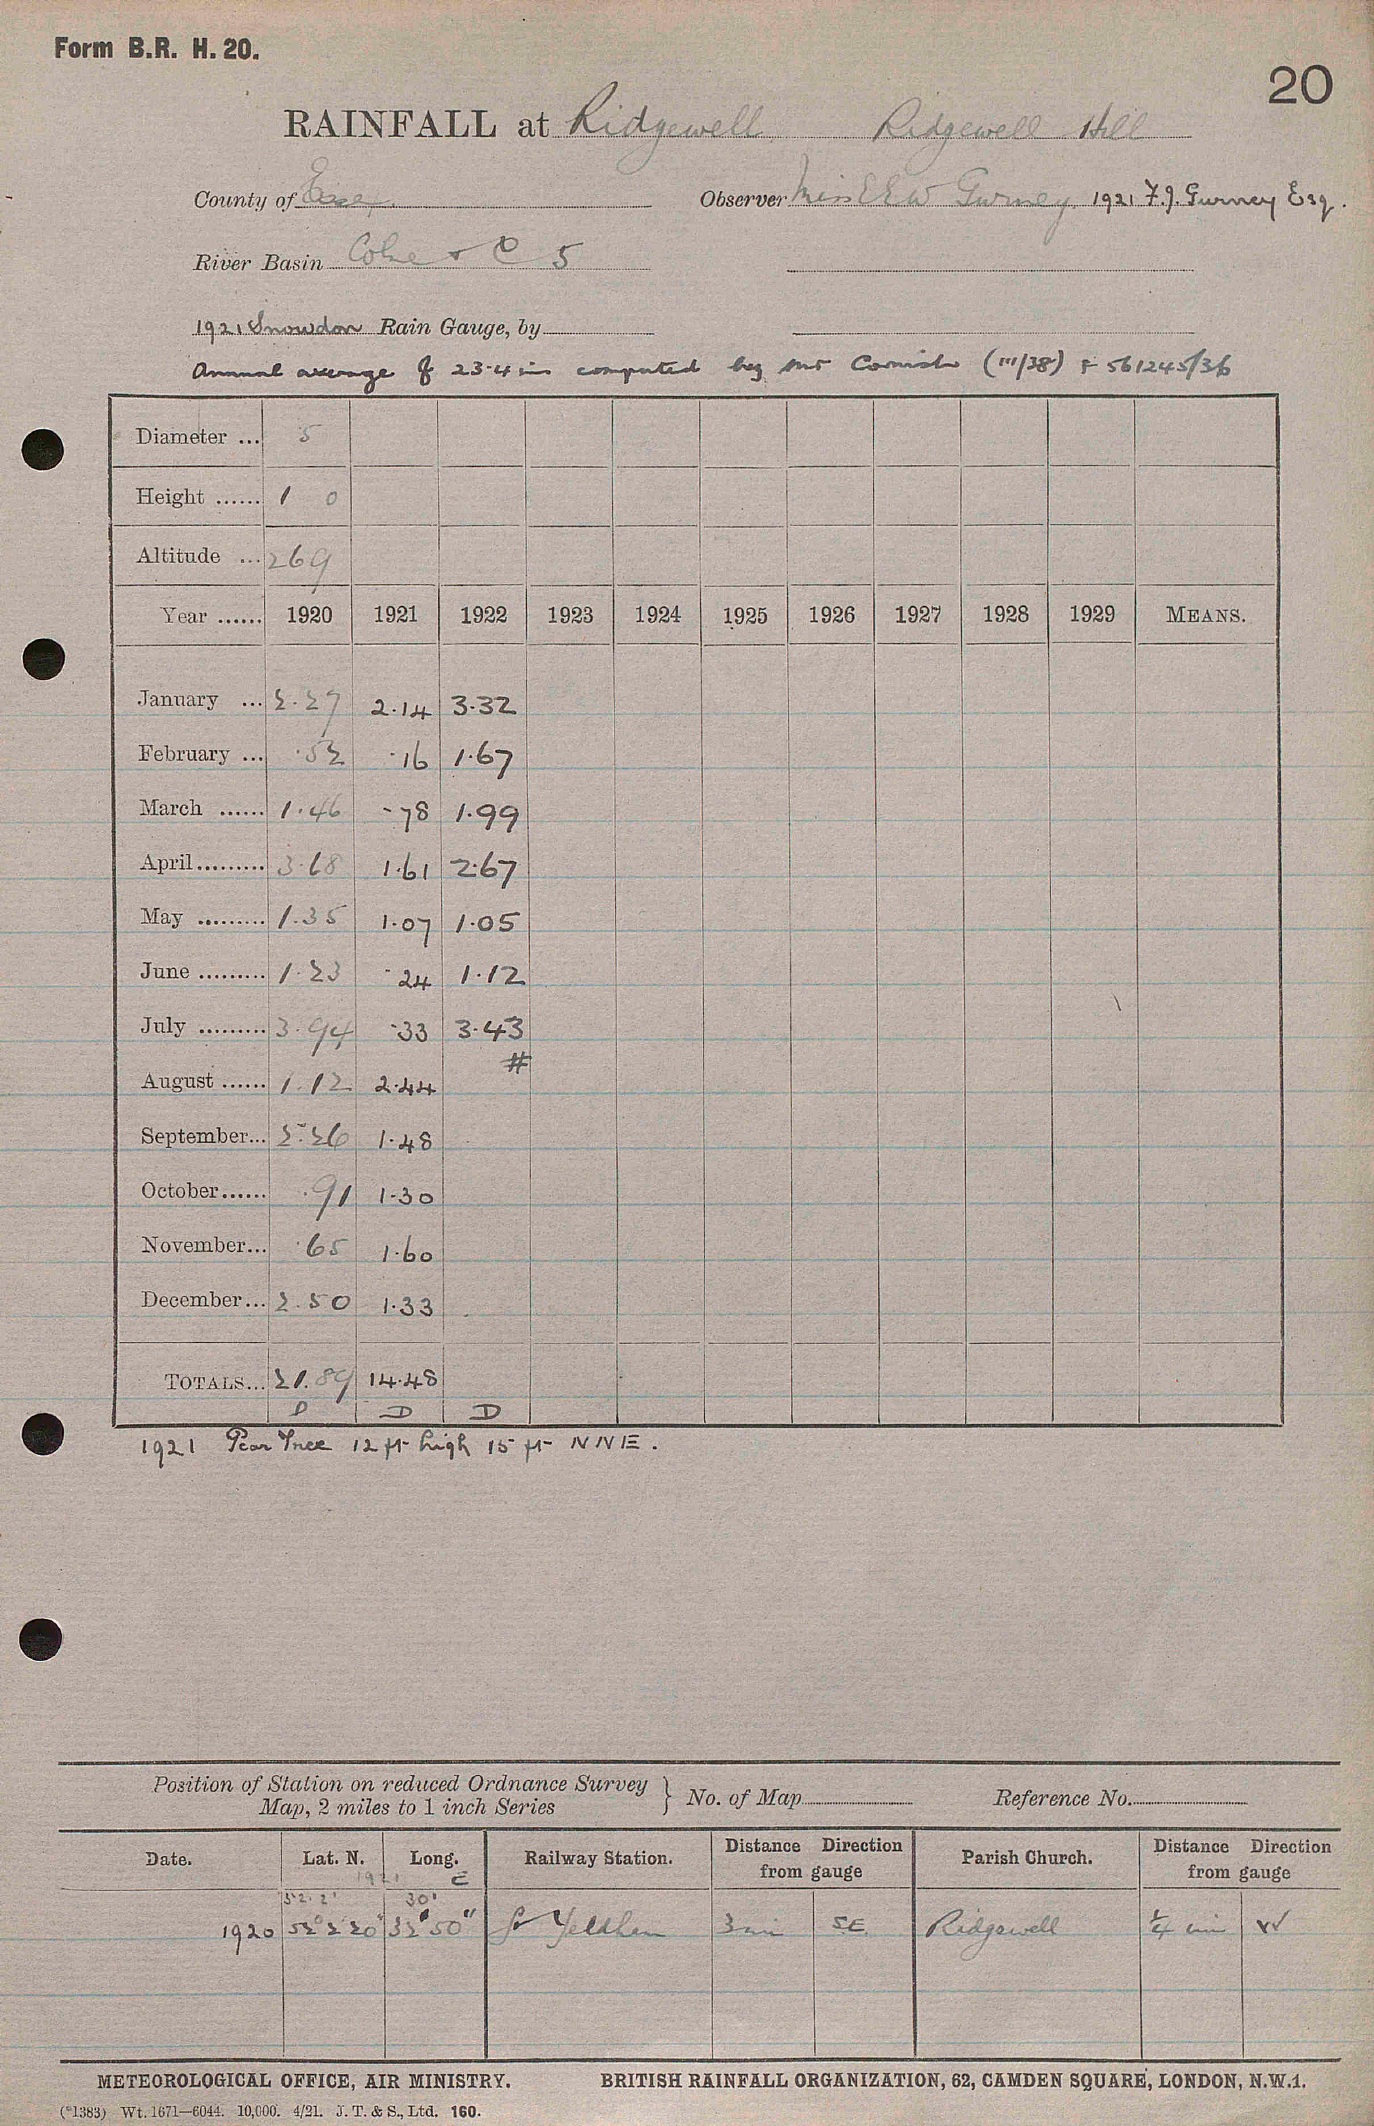 Form B.R. H. 20.
20
RAINFALL at Ridgewell Ridgewell Hill
County of Essex Observer Miss E E W Gurney 1921 F.J. Gurney Esq.
River Basin Colne + C 5
1921 Snowdon Rain Gauge, by
Annual average of 23.4 in computed by Mr Cornish (111/38) F 561245/36
Diameter ... 5
Height ...... 1 0
Altitude ... 269
Year ...... 1920 1921 1922 1923 1924 1925 1926 1927 1928 1929 MEANS.
January ... 2.27 2.14 3.32
February ... .52 .16 1.67
March ...... 1.46 .78 1.99
April......... 3.68 1.61 2.67
May ......... 1.35 1.07 1.05
June ......... 1.23 .24 1.12
July ......... 3.94 .33 3.43
#
August ...... 1.12 2.44
September... 2.26 1.48
October...... .91 1.30
November... .65 1.60
December... 2.50 1.33
TOTALS... 21.89 14.48
D D D
1921 Pear Tree 12 ft high 15 ft NNE.
Position of Station on reduced Ordnance Survey
Map, 2 miles to 1 inch Series } No. of Map Reference No.
Date. Lat. N. Long. Railway Station. Distance Direction from gauge Parish Church. Distance Direction from gauge
1921 E
52.2' 30'
1920 52° 2' 20" 32' 50" Gt Yeldham 3 mi SE Ridgewell 1/4 mi W
METEOROLOGICAL OFFICE, AIR MINISTRY. BRITISH RAINFALL ORGANIZATION, 62, CAMDEN SQUARE, LONDON, N.W.1.
(*1383) Wt. 1671—6044. 10,000. 4/21. J. T. & S., Ltd. 160.